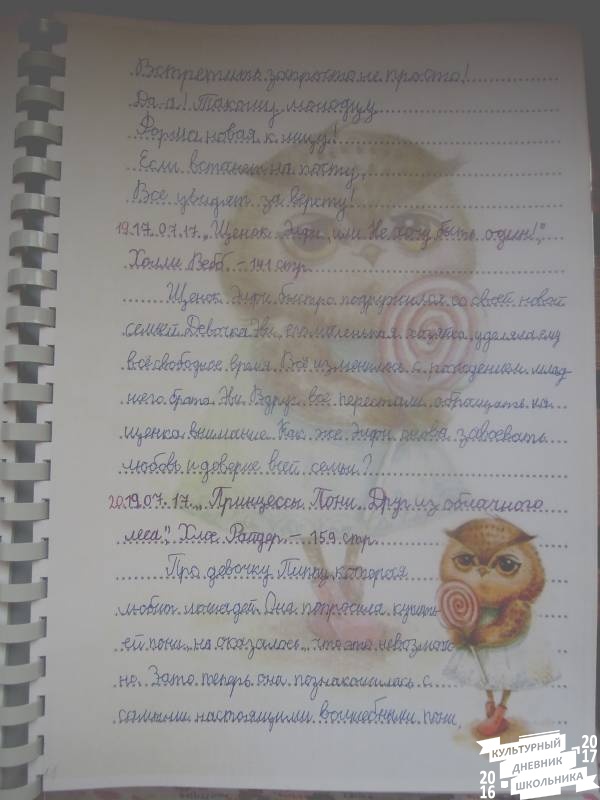 Встретишь запросто не просто!
Да-а! Такому молодцу
Форма новая к лицу!
Если встанет на посту,
Все увидят за версту!
19. 17.07.17. „Щенок Элфи, или Не хочу быть один!",
Холли Вебб. – 141 стр.
Щенок Элфи быстро подружился со своей новой
семьёй. Девочка Эви, его маленькая хозяйка, уделяла ему
всё свободное время. Всё изменилось с рождением млад
шего брата Эви. Вдруг все перестали обращать на
щенка внимание. Как же Элфи снова завоевать
любовь и доверие всей семьи?
20. 19.07.17. „Принцессы Пони. Друг из облачного
леса", Хлое Райдер. – 159 стр.
Про девочку Пиппу, которая
любит лошадей. Она попросила купить
ей пони, но оказалось, что это невозмож
но. Зато теперь она познакомилась с
самыми настоящими волшебными пони,
КУЛЬТУРНЫЙ
ДНЕВНИК
ШКОЛЬНИКА
2016
2017